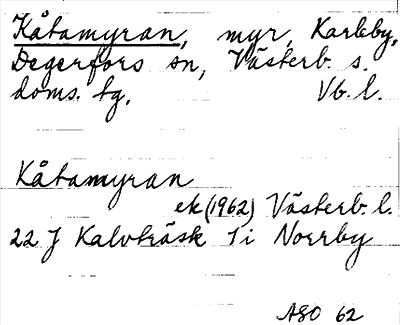 Kåtamyran, myr, Karlsby,
Degerfors sn, Västerb. s.
doms. tg. Vb. l.
Kåtamyran
ek (1962) Västerb. l.
22 J Kalvträsk 1 i Norrby
ASO 62